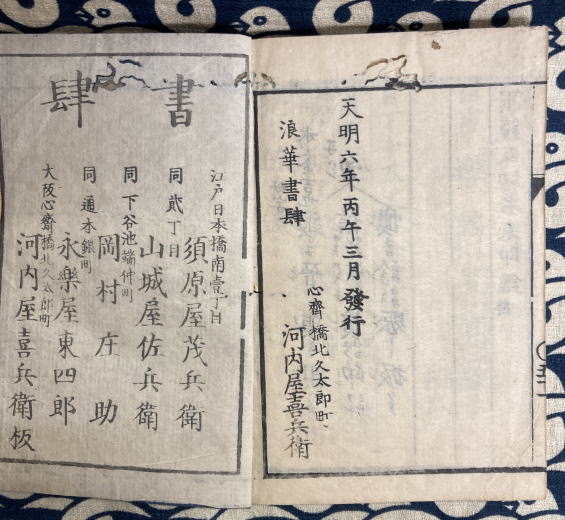 天明六年丙午三月發行
浪華書肆
心齋橋北久太郎町
河内屋喜兵衛
書肆
江戸日本橋南壹丁目
須原屋茂兵衛
同貮丁目
山城屋佐兵衛
同下谷池端仲町
岡村庄助
同通本銀町
永樂屋東四郎
大阪心齋橋北久太郎町
河内屋喜兵衛板